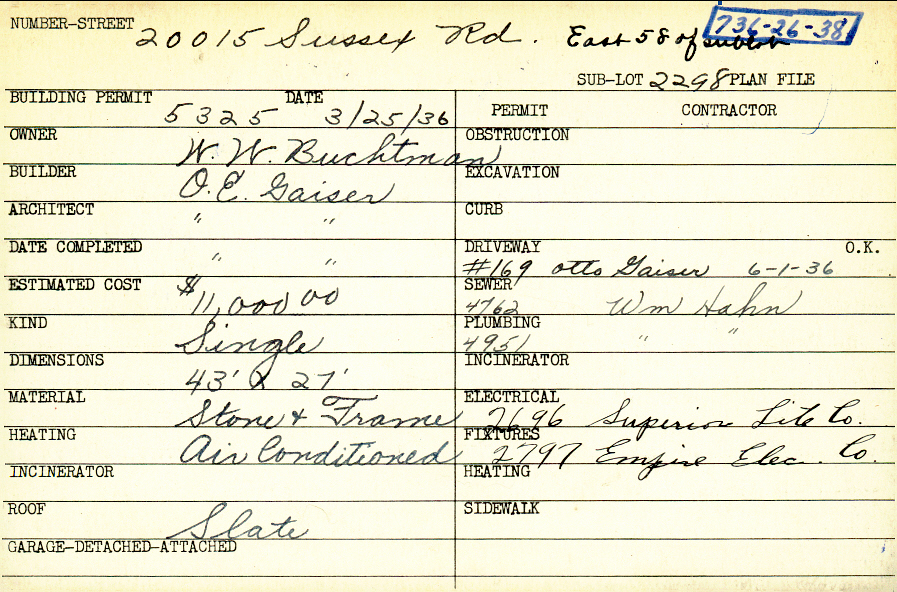 NUMBER-STREET 20015 Sussex Rd. East 58 of sublot 736-26-38
SUB-LOT 2298 PLAN FILE
BUILDING PERMIT 5325 DATE 3/25/36
OWNER W. W. Buchtman
BUILDER O. E. Gaiser
ARCHITECT " "
DATE COMPLETED " "
ESTIMATED COST $11,000 00
KIND Single
DIMENSIONS 43' X 27'
MATERIAL Stone & Frame
HEATING Air Conditioned
INCINERATOR
ROOF Slate
GARAGE-DETACHED-ATTACHED
PERMIT CONTRACTOR
OBSTRUCTION
EXCAVATION
CURB
DRIVEWAY O.K.
#169 Otto Gaiser 6-1-36
SEWER
4762 Wm Hahn
PLUMBING
4951 " "
INCINERATOR
ELECTRICAL
2696 Superior Lite Co.
FIXTURES
2797 Empire Elec. Co.
HEATING
SIDEWALK